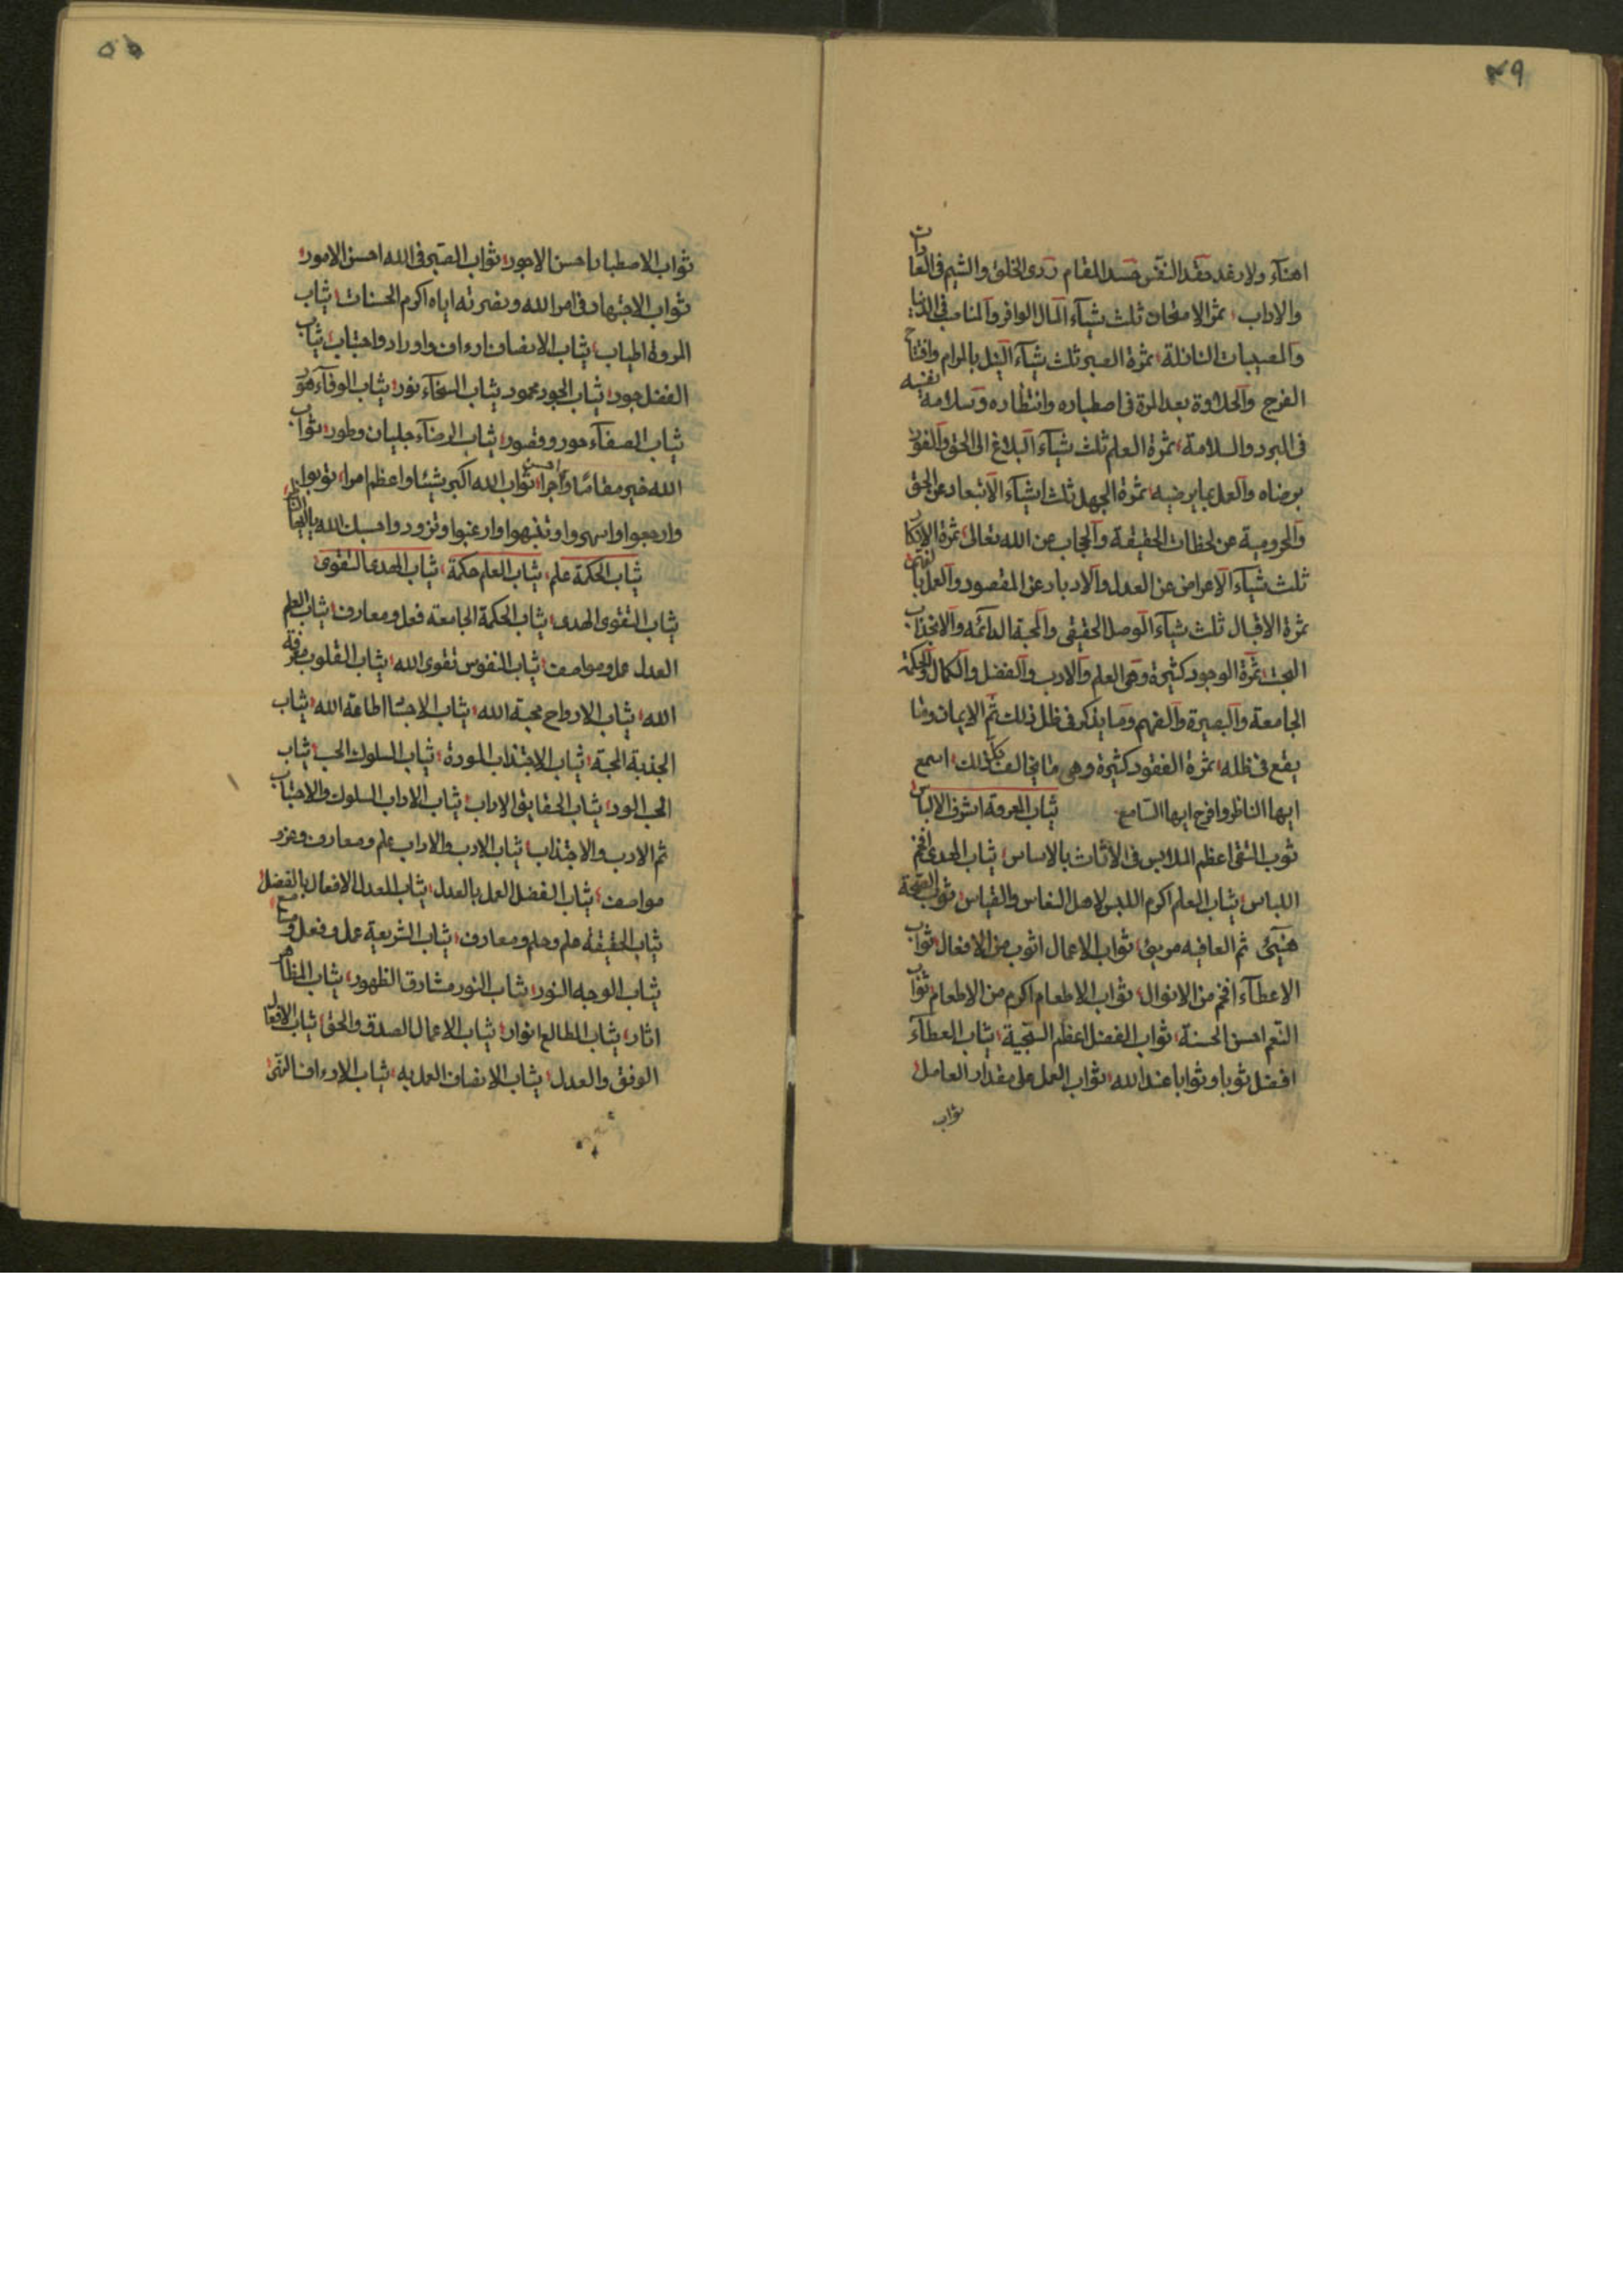 ٤٩
اهناء ولا رغد فقد النفس حسد المقام ردى الخلق والشيم فى العادات
والاداب ثمر الامتحان ثلث شياء المال الوافر والمناصب فى الدنيا
والمصيبات النازلة ثمرة الصبر ثلث شياء النيل بالمرام وافتتاح
الفرج والحلاوة بعد المرة فى اصطباره وانتظاره وتسلامة نفسه
فى البرد والسلامة ثمرة العلم ثلث شياء البلاغ الى الحق والفوز
برضاه والعمل بما يرضيه ثمرة الجهل ثلث اشياء الابتعاد عن الحق
والمحرومية عن لحظات الحقيقة والحجاب عن الله تعالى ثمرة الانكار
ثلث شياء الاعراض عن العدل والادبار عن المقصود والعمل
ثمرة الاقبال ثلث شياء الوصل الحقيقى والمحبة الدائمه والانجذاب
البحت ثمرة الوجود كثيرة وهى العلم والادب والفضل والكمال والحكمة
الجامعة والبصيرة والفهم وما يذكر فى ظل ذلك ثم الايمان وما
يقع فى ظله ثمرة الفقود كثيرة وهى ما يخالف كل ذلك اسمع
ايها الناظر وافرح ايها السامع ثياب المعرفة اشرف الالباس
ثوب التقى اعظم الملابس فى الأثاث بالاساس ثياب الهدى افخم
اللباس ثياب العلم اكرم اللبس لاهل النفاس والقياس ثوب الصحة
هنيئ ثم العافيه مريئ ثواب الاعمال اثوب من الافعال ثواب
الاعطاء افخم من الانوال ثواب الاطعام اكرم من الاطعام ثواب
النعم احسن الحسنة ثواب الفضل اعظم السجية ثياب العطاء
افضل ثوبا وثوابا عند الله ثواب العمل على مقدار العامل
ثواب
٥٠
ثواب الاصطبار احسن الاجور ثواب الصبر فى الله احسن الامور
ثواب الاجتهاد فى امر الله ونصرته اياه اكرم الحسنات ثياب
المروة اطياب ثياب الانصاف ارءاف واوراد واحباب ثياب
الفضل جود ثياب الجود محمود ثياب السخاء نور ثياب الوفاء هو
ثياب الصفاء حور وقصور ثياب الرضاء جليان وطور ثواب
الله خير مقامًا واحسن اجرا ثواب الله اكبر شيئا واعظم امرا توبوا
وارجعوا واسرعوا وتنبهوا وارغبوا وتزودوا حسبك الله
ثياب الحكمة علم ثياب العلم حكمة ثياب الهدى التقوى
ثياب التقوى الهدى ثياب الحكمة الجامعه فعل ومعارف ثياب العلم
العدل عمل ومواصف ثياب النفوس تقوى الله ثياب القلوب معرفة
الله ثياب الارواح محبة الله ثياب الاجسا اطاعة الله ثياب
الجذبة المحبة ثياب الاجتذاب المودة ثياب السلوك الحب ثياب
الحب الود ثياب الحقايق الاداب ثياب الاداب السلوك والاجتباب
ثم الادب والاجتذاب ثياب الادب والاداب علم ومعارف وعزو
مواصف ثياب الفضل العمل بالعدل ثياب العدل الافعال بالفضل
ثياب الحقيقة علم وحلم ومعارف ثياب الشريعة عمل وفعل
ثياب الوجه النور ثياب النور مشارق الظهور ثياب المظاهر
اثار ثياب المطالع انوار ثياب الاعمال الصدق والحق ثياب الافعال
الوفق والعدل ثياب الانصاف العمل به ثياب الارءاف التقى